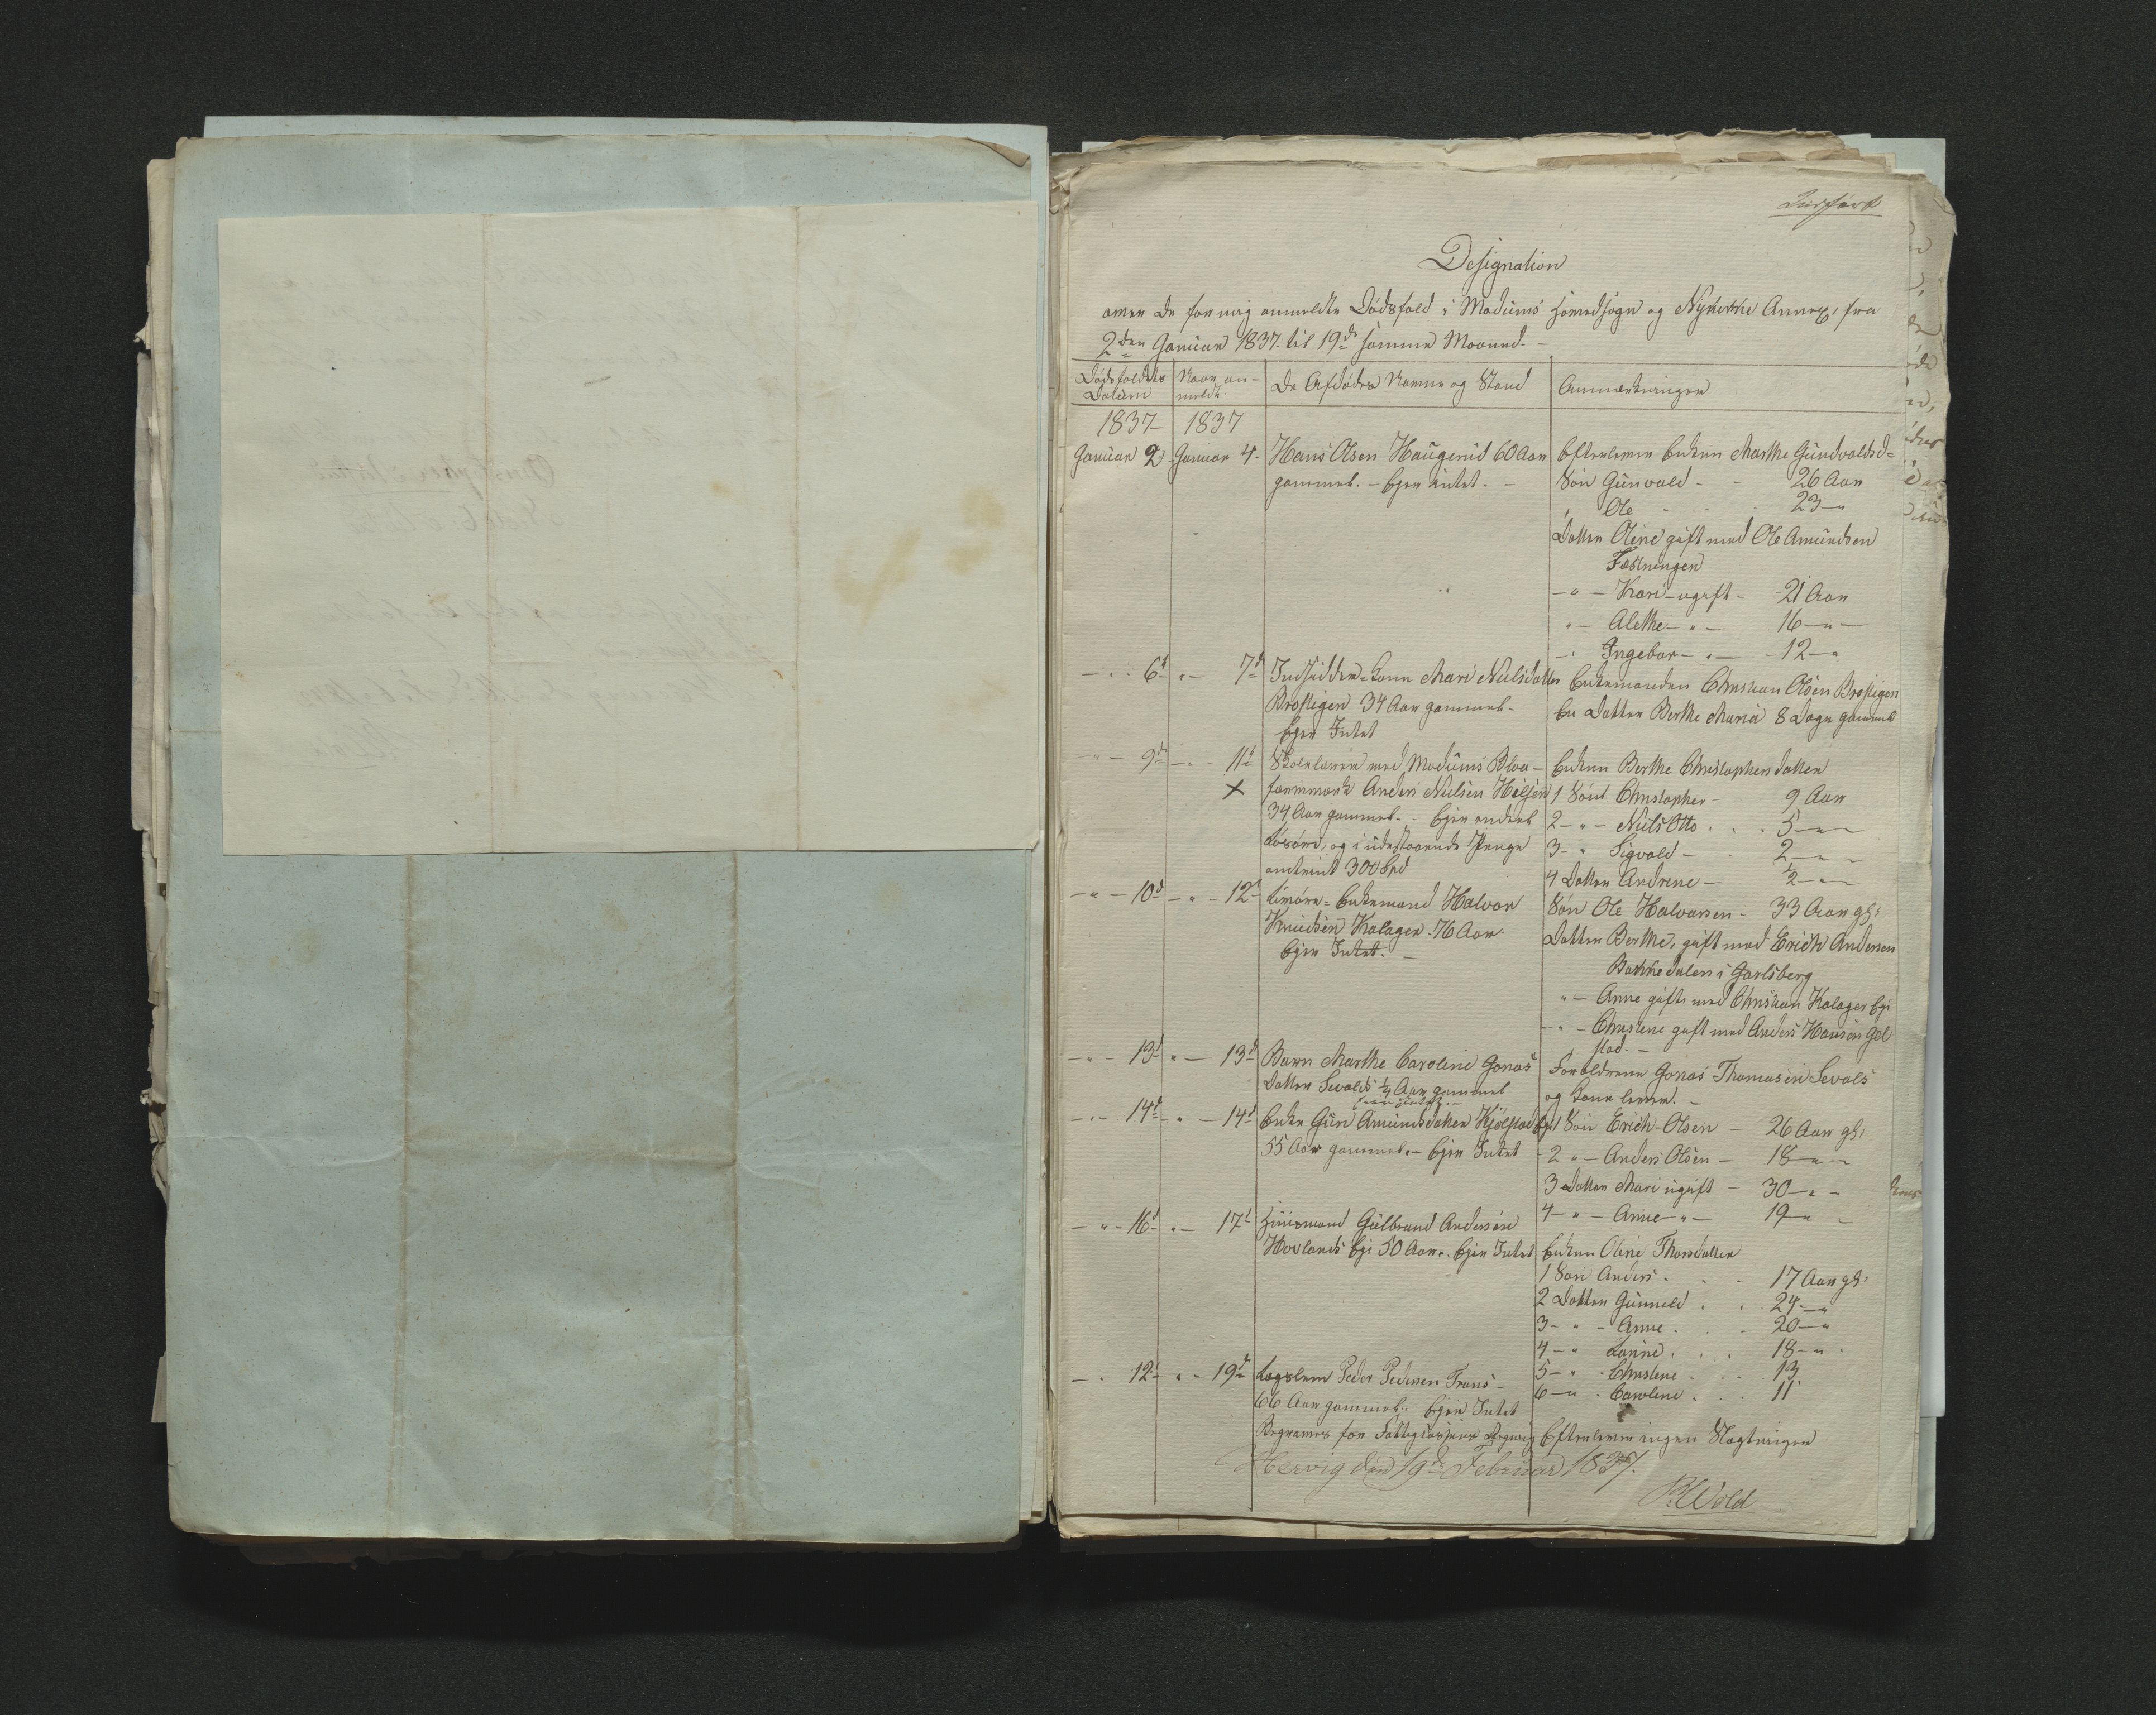 Indført
Designation
over de for mig anmeldte Dødsfald i Modums Hovedsogn og Nykirke Annex, fra
2den Januar 1837 til 19de samme Maaned. -
Dødsfaldets Datum | Naar anmeldt | De Afdødes Navne og Stand | Anmærkninger
1837 - 1837
Januar 2 Januar 4. Hans Olsen Haugerud 60 Aar
gammel. - Ejer intet. -
Efterlever Enken Marthe Gundvoldsd=
Søn Gunvald - - 26 Aar
" Ole - - 23 - "
Datter Oline gift med Ole Amundsen
Fæstningen
- " - Kari - ugift - 21 Aar
" - Alethe - " - 16 - " -
- " Ingebor - " - 12 - "
- " - 6te " - 7de Indsidder-Kone Mari Nielsdatter
34 Aar gammel -
Ejer Intet
Enkemanden Christian Olsen
En Datter Berthe Maria 8 Dage gammel
- " - 9de - " - 11te Skolelærer ved Modums Blaa-
farveværk Anders Nielsen
34 Aar gammel. - Ejer endeel
Løsøre, og i udestaaende Penge
omtrent 300 Spd
Enken Berthe Christophersdatter
1 Søn Christopher - 9 Aar
2 - " - Niels Otto . . . 5 - " -
3 - " Sigvald - 2 - " -
4 Datter Andrine - 1/2 - " -
- " - 10de - " - 12te Enkemand Halvor
Knudsen Kalager 76 Aar.
Ejer Intet. -
Søn Ole Halvorsen - 33 Aar gl:
Datter Berthe, gift med Erich Andersen
i Jarlsberg
" - Anne gift med Christian Kalager Eje
- " - Christene gift med Anders Hansen Gul
stad. -
- " - 13de " - 13de Barn Marthe Caroline Jonas
Datter Sevalds 1/4 Aar gammel
Forældrene Jonas Thomasen Sevals
og Kone lever. -
- " - 14de " - 14de Enke Guri Amundsdatter Kjølstad Eje
55 Aar gammel. - Ejer Intet
1 Søn Erich Olsen - 26 Aar gl:
2 " - Anders Olsen - 18 - " -
3 Datter Mari ugift - 30 - " -
4 - " - Anne - " - 19 - " -
- " - 16de " - 17de Huusmand Gulbrand Andersen
Hovlands Eje 50 Aar. Ejer Intet
Enken Oline Thorsdatter
1 Søn Anders . - 17 Aar gl:
2 Datter Gunnild . . 24 - "
3 - " - Anne . - 20 - "
4 - " . . . 18 - " .
5 - " . Christene - . . 13
6 - " . Caroline . . . 11
- . 12te " - 19de Lægslem Peder Pedersen
66 Aar gammel. Ejer Intet
Begraves for Fattigkassens Regning Efterlever ingen Slægtninger
den 19de Februar 1837.
Wold